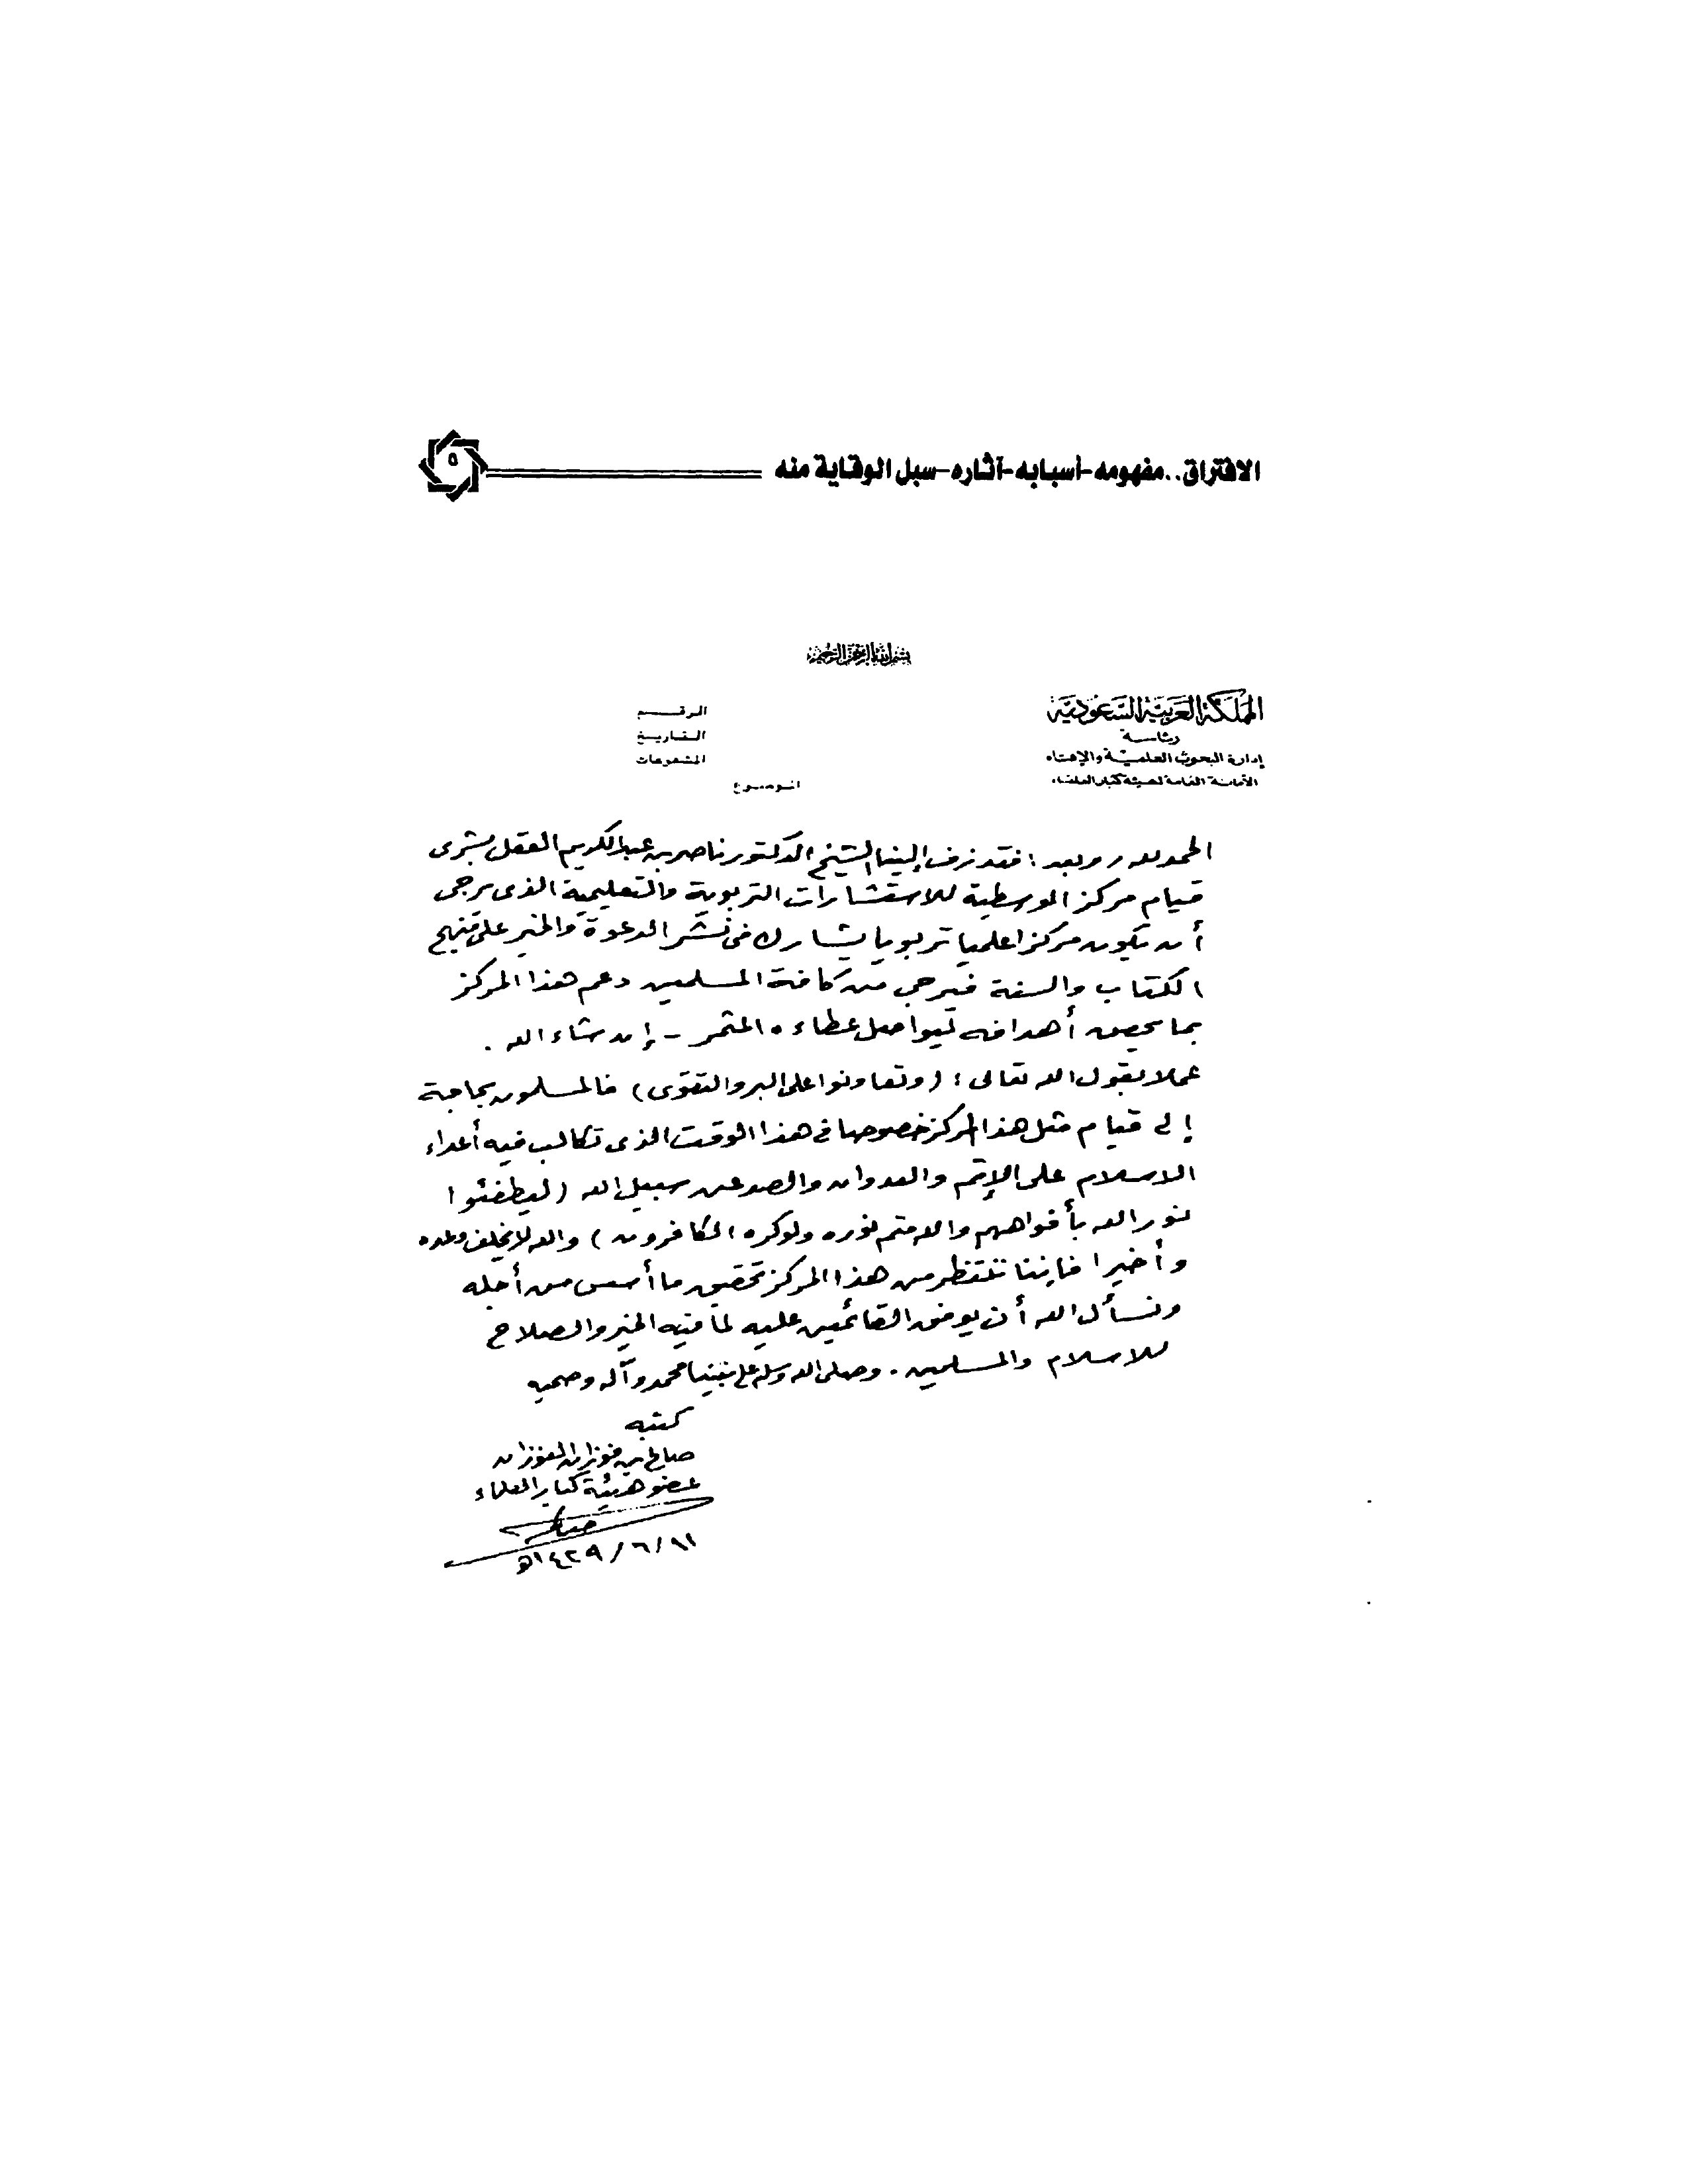 الافتراق..مفهومه-أسبابه-آثاره-سبل الوقاية منه
٥
بسم الله الرحمن الرحيم
المملكة العربية السعودية
رئاسة
إدارة البحوث العلمية والإفتاء
الأمانة العامة لهيئة كبار العلماء
الرقم
التاريخ
المشفوعات
الموضوع
الحمد لله، وبعد: فقد زف إلينا الشيخ الدكتور ناصر بن عبدالكريم العقل بشرى
قيام مركز الوسطية للاستشارات التربوية والتعليمية الذى يرجى
أن يكون مركزا علميا تربويا يشارك فى نشر الدعوة والخير على منهج
الكتاب والسنة فيرجى من كافة المسلمين دعم هذا المركز
بما يحقق أهدافه ليواصل عطاءه المثمر - إن شاء الله .
عملا بقول الله تعالى : (وتعاونوا على البر والتقوى) فالمسلمون بحاجة
إلى قيام مثل هذا المركز خصوصا في هذا الوقت الذى تكالب فيه أعداء
الاسلام على الإثم والعدوان والصد عن سبيل الله (ليطفئوا
نور الله بأفواههم والله متم نوره ولو كره الكافرون) والله لا يخلف وعده
وأخيرا فإننا ننتظر من هذا المركز تحقيق ما أسس من أجله
ونسأل الله أن يوفق القائمين عليه لما فيه الخير والصلاح
للاسلام والمسلمين . وصلى الله وسلم على نبينا محمد وآله وصحبه
كتبه
صالح بن فوزان الفوزان
عضو هيئة كبار العلماء
صالح
١٤٢٩/٦/١١هـ